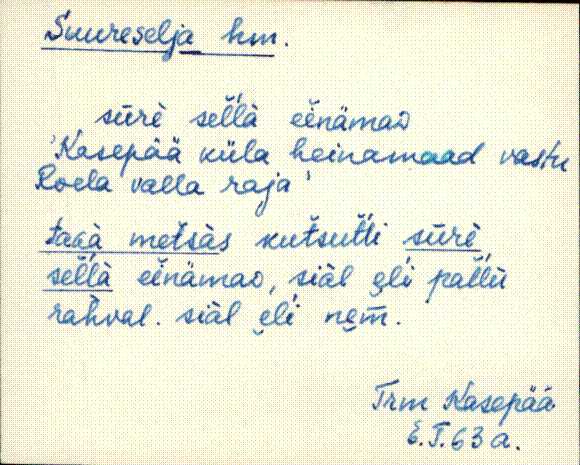 Suureselja hm.
sūrè sel̆l̆à eìnämaᴅ
'Kasepää küla heinamaad vastu
Roela valla raja'
taɢà metsàs kutsut̆t̆i sūrè
sel̆l̆à eìnämaᴅ, siäl ęl̆i pal̆l̆ù
rahval. siäl ęl̆i nęm̄.
Trm Kasepää
E.T. 63 a.